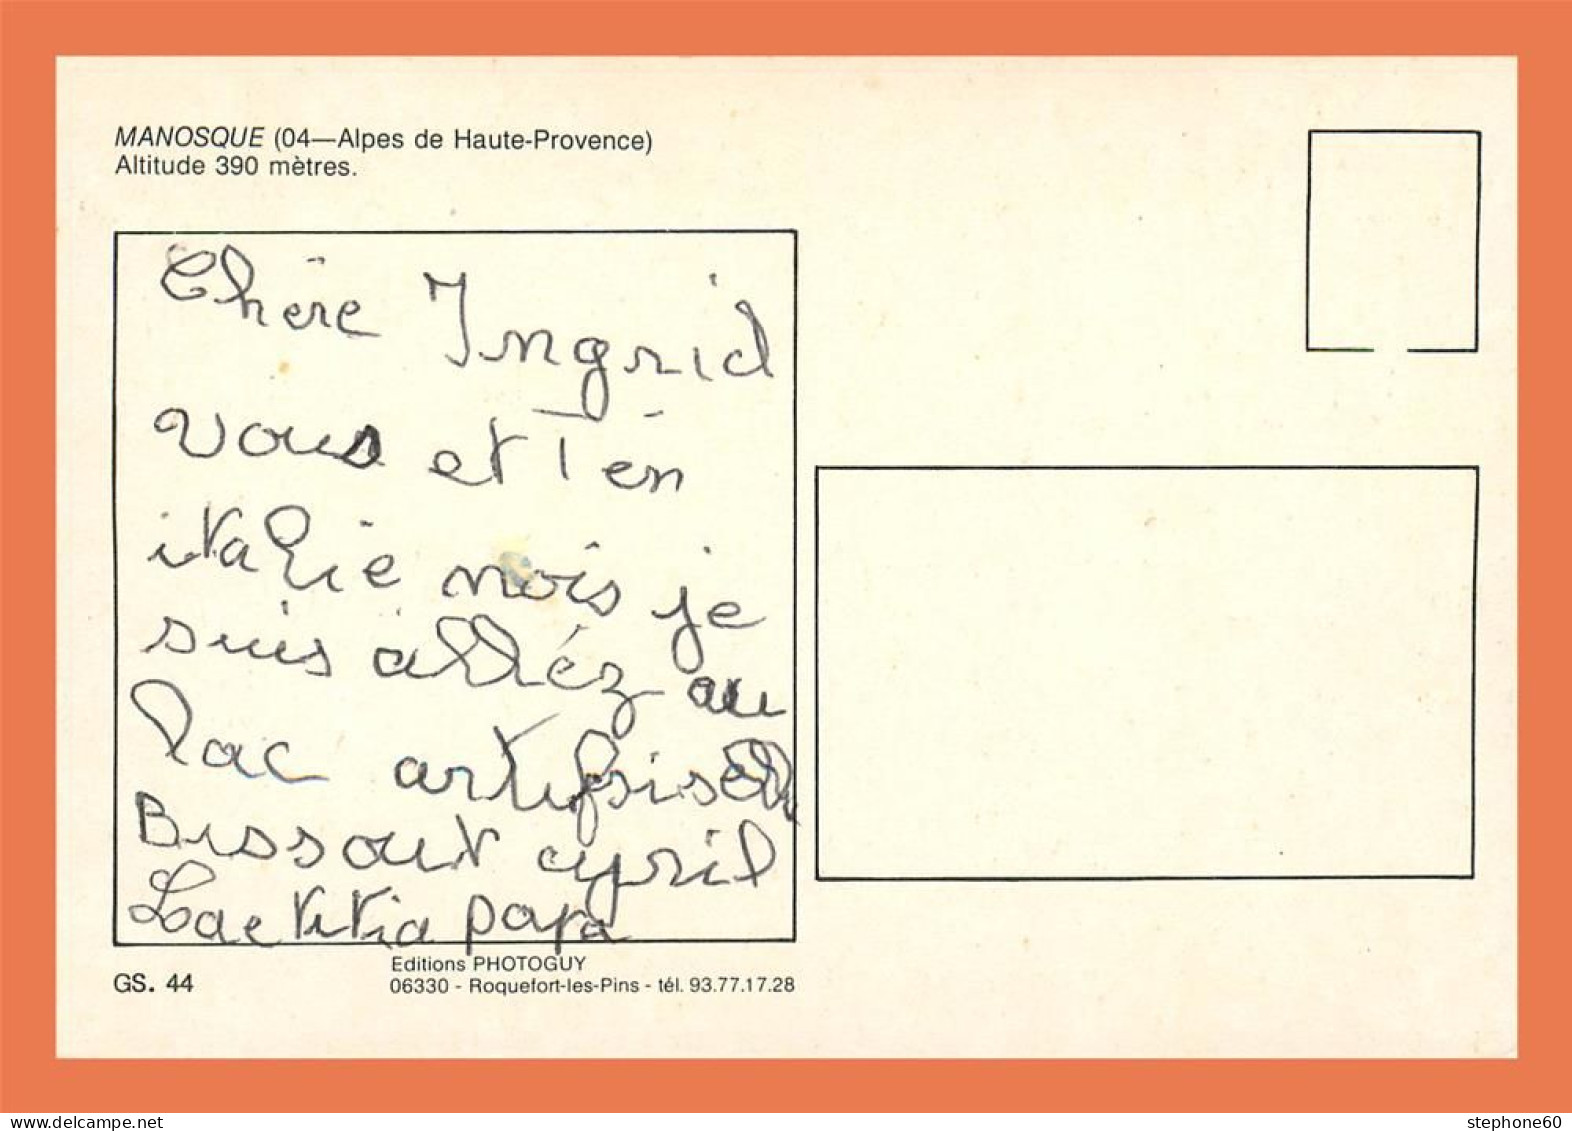 MANOSQUE (04—Alpes de Haute-Provence)
Altitude 390 mètres.
Chère Ingrid
vous et en
italie mois je
suis alléz au
lac
Bissout cyril
Laetitia papa
GS. 44
Editions PHOTOGUY
06330 - Roquefort-les-Pins - tél. 93.77.17.28
stephone60